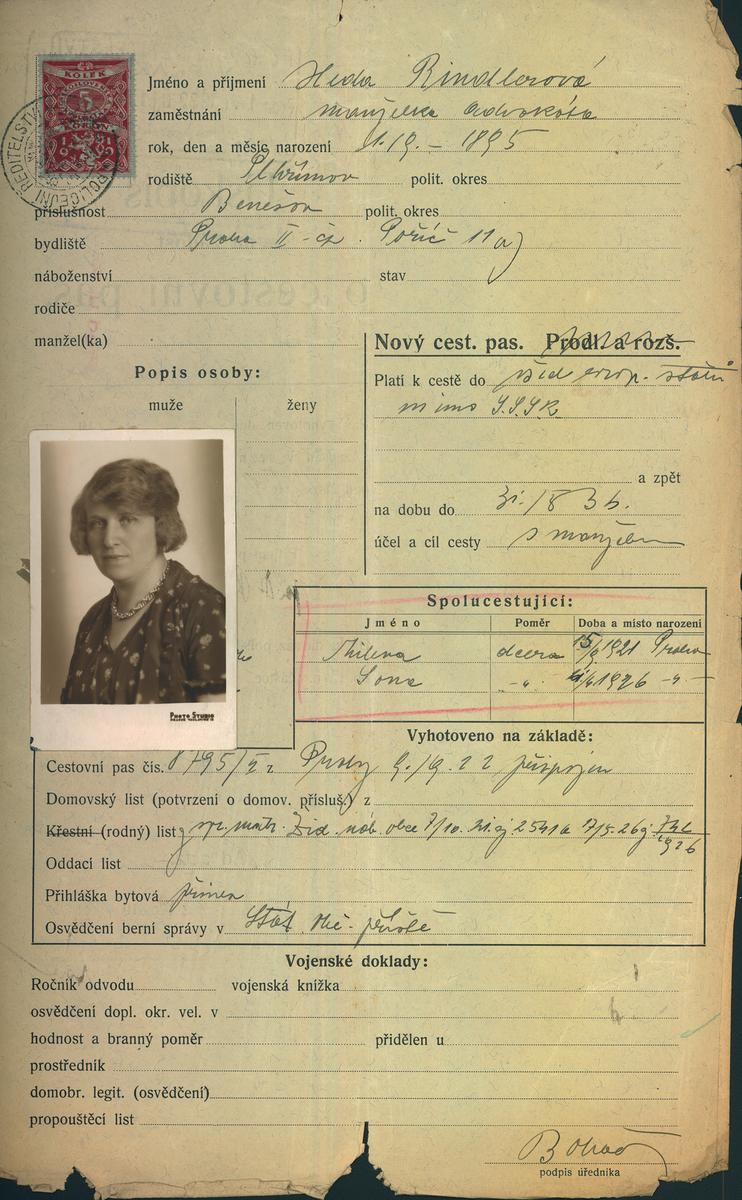 KOLEK
5
POLICEJNÍ ŘEDITELSTVÍ
Jméno a příjmení Heda Rindlerová
zaměstnání manželka advokáta
rok, den a měsíc narození 1.19. - 1895
rodiště polit. okres
příslušnost Benešov polit. okres
bydliště Praha II - čp. Poříč 11 a)
náboženství stav
rodiče
manžel(ka)
Nový cest. pas. Prodl. a rozš.
Popis osoby:
Platí k cestě do všid evrop. států
muže ženy
mimo S.S.S.R
a zpět
na dobu do 31./8 36.
účel a cíl cesty s manželem
Spolucestující:
Jméno Poměr Doba a místo narození
Milena dcera 15/9 1921 Praha
Sona -"- 1926 -"-
PHOTO STUDIO
Vyhotoveno na základě:
Cestovní pas čis. 8795/22 9./9.22 připojen
Domovský list (potvrzení o domov. přísluš.) z
Křestní (rodný) list žid. náb. obce 7/10. 21 čj 2541 a 17/5.26 1926
Oddací list
Přihláška bytová
Osvědčení berní správy v
Vojenské doklady:
Ročník odvodu vojenská knížka
osvědčení dopl. okr. vel. v
hodnost a branný poměr přidělen u
prostředník
domobr. legit. (osvědčení)
propouštěcí list
podpis úředníka